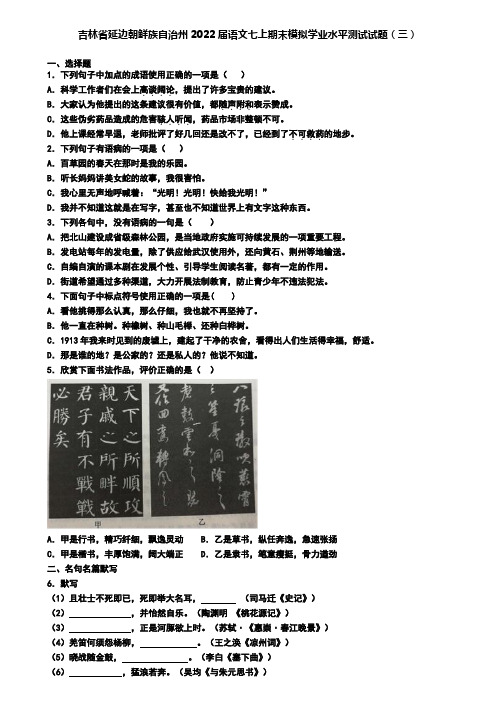 吉林省延边朝鲜族自治州2022届语文七上期末模拟学业水平测试试题（三）
一、选择题
1．下列句子中加点的成语使用正确的一项是（ ）
A．科学工作者们在会上高谈阔论，提出了许多宝贵的建议。
B．大家认为他提出的这条建议很有价值，都随声附和表示赞成。
C．这些伪劣药品造成的危害骇人听闻，药品市场非整顿不可。
D．他上课经常早退，老师批评了好几回还是改不了，已经到了不可救药的地步。
2．下列句子有语病的一项是（ ）
A．百草园的春天在那时是我的乐园。
B．听长妈妈讲美女蛇的故事，我很害怕。
C．我心里无声地呼喊着：“光明！光明！快给我光明！”
D．我并不知道这就是在写字，甚至也不知道世界上有文字这种东西。
3．下列各句中，没有语病的一句是（ ）
A．把北山建设成省级森林公园，是当地政府实施可持续发展的一项重要工程。
B．发电站每年的发电量，除了供应给武汉使用外，还向黄石、荆州等地输送。
C．自编自演的课本剧在发展个性、引导学生阅读名著，都有一定的作用。
D．街道希望通过多种渠道，大力开展法制教育，防止青少年不违法犯法。
4．下面句子中标点符号使用正确的一项是( )
A．看他挑得那么认真，那么仔细，我也就不再坚持了。
B．他一直在种树。种橡树、种山毛榉、还种白桦树。
C．1913年我来时见到的废墟上，建起了干净的农舍，看得出人们生活得幸福，舒适。
D．那是谁的地？是公家的？还是私人的？他说不知道。
5．欣赏下面书法作品，评价正确的是（ ）
天下之所順攻
親戚之所畔故
君子有不戰戰
必勝矣
甲
乙
A．甲是行书，精巧纤细，飘逸灵动 B．乙是草书，纵任奔逸，急速张扬
C．甲是楷书，丰厚饱满，阔大端正 D．乙是隶书，笔意瘦挺，骨力遒劲
二、名句名篇默写
6．默写
（1）且壮士不死即已，死即举大名耳，______ （司马迁《史记》）
（2）__________，并怡然自乐。（陶渊明 《桃花源记》）
（3）__________，正是河豚欲上时。（苏轼·《惠崇·春江晚景》）
（4）羌笛何须怨杨柳，__________。（王之涣《凉州词》）
（5）晓战随金鼓，__________。（李白《塞下曲》）
（6）__________，猛浪若奔。（吴均《与朱元思书》）